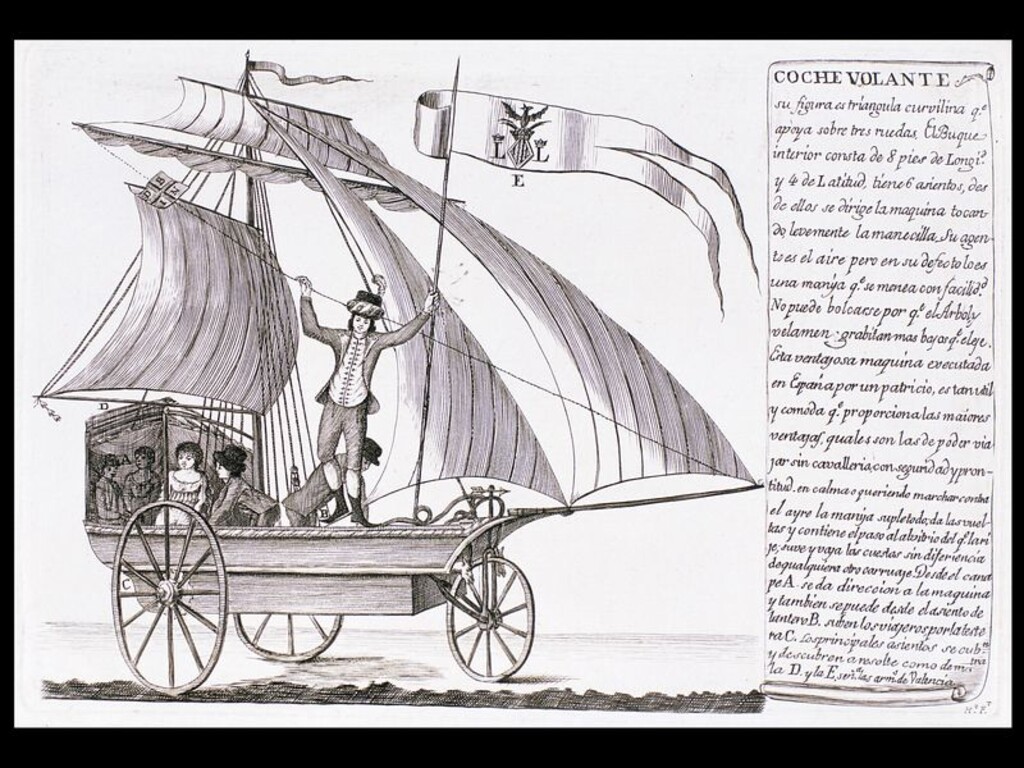 COCHE VOLANTE
su figura es triangula curvilina q.e
apoya sobre tres ruedas. El Buque
interior consta de 8 pies de Longi.d
y 4 de Latitud, tiene 6 asientos, des
de ellos se dirige la maquina tocan-
do levemente la manecilla. Su agen-
te es el aire pero en su defecto lo es
una manija q.e se menea con facilid.d
No puede bolcarse por q.e el Arbol y
velamen grabitan mas bajos q.e el eje.
Esta ventajosa maquina executada
en España por un patricio, es tan util
y comoda q.e proporciona las maiores
ventajas, quales son las de poder via
jar sin cavalleria, con seguridad y pron-
titud. en calma o queriendo marchar contra
el ayre la manija suple todo; da las vuel-
tas y contiene el paso al alvitrio del q.e la ri
je, suve y vaja las cuestas sin diferiencia
de qualquiera otro carruaje. Desde el cana
pe A. se da direccion a la maquina
y tambien se puede desde el asiento de
lantero B. suben los viajeros por la teste
ra C. Los principales asientos se cub.n
y descubren a resolte como demues
la D. y la E, señ.a las arm.s de Valencia.
L L
E
D
B
C